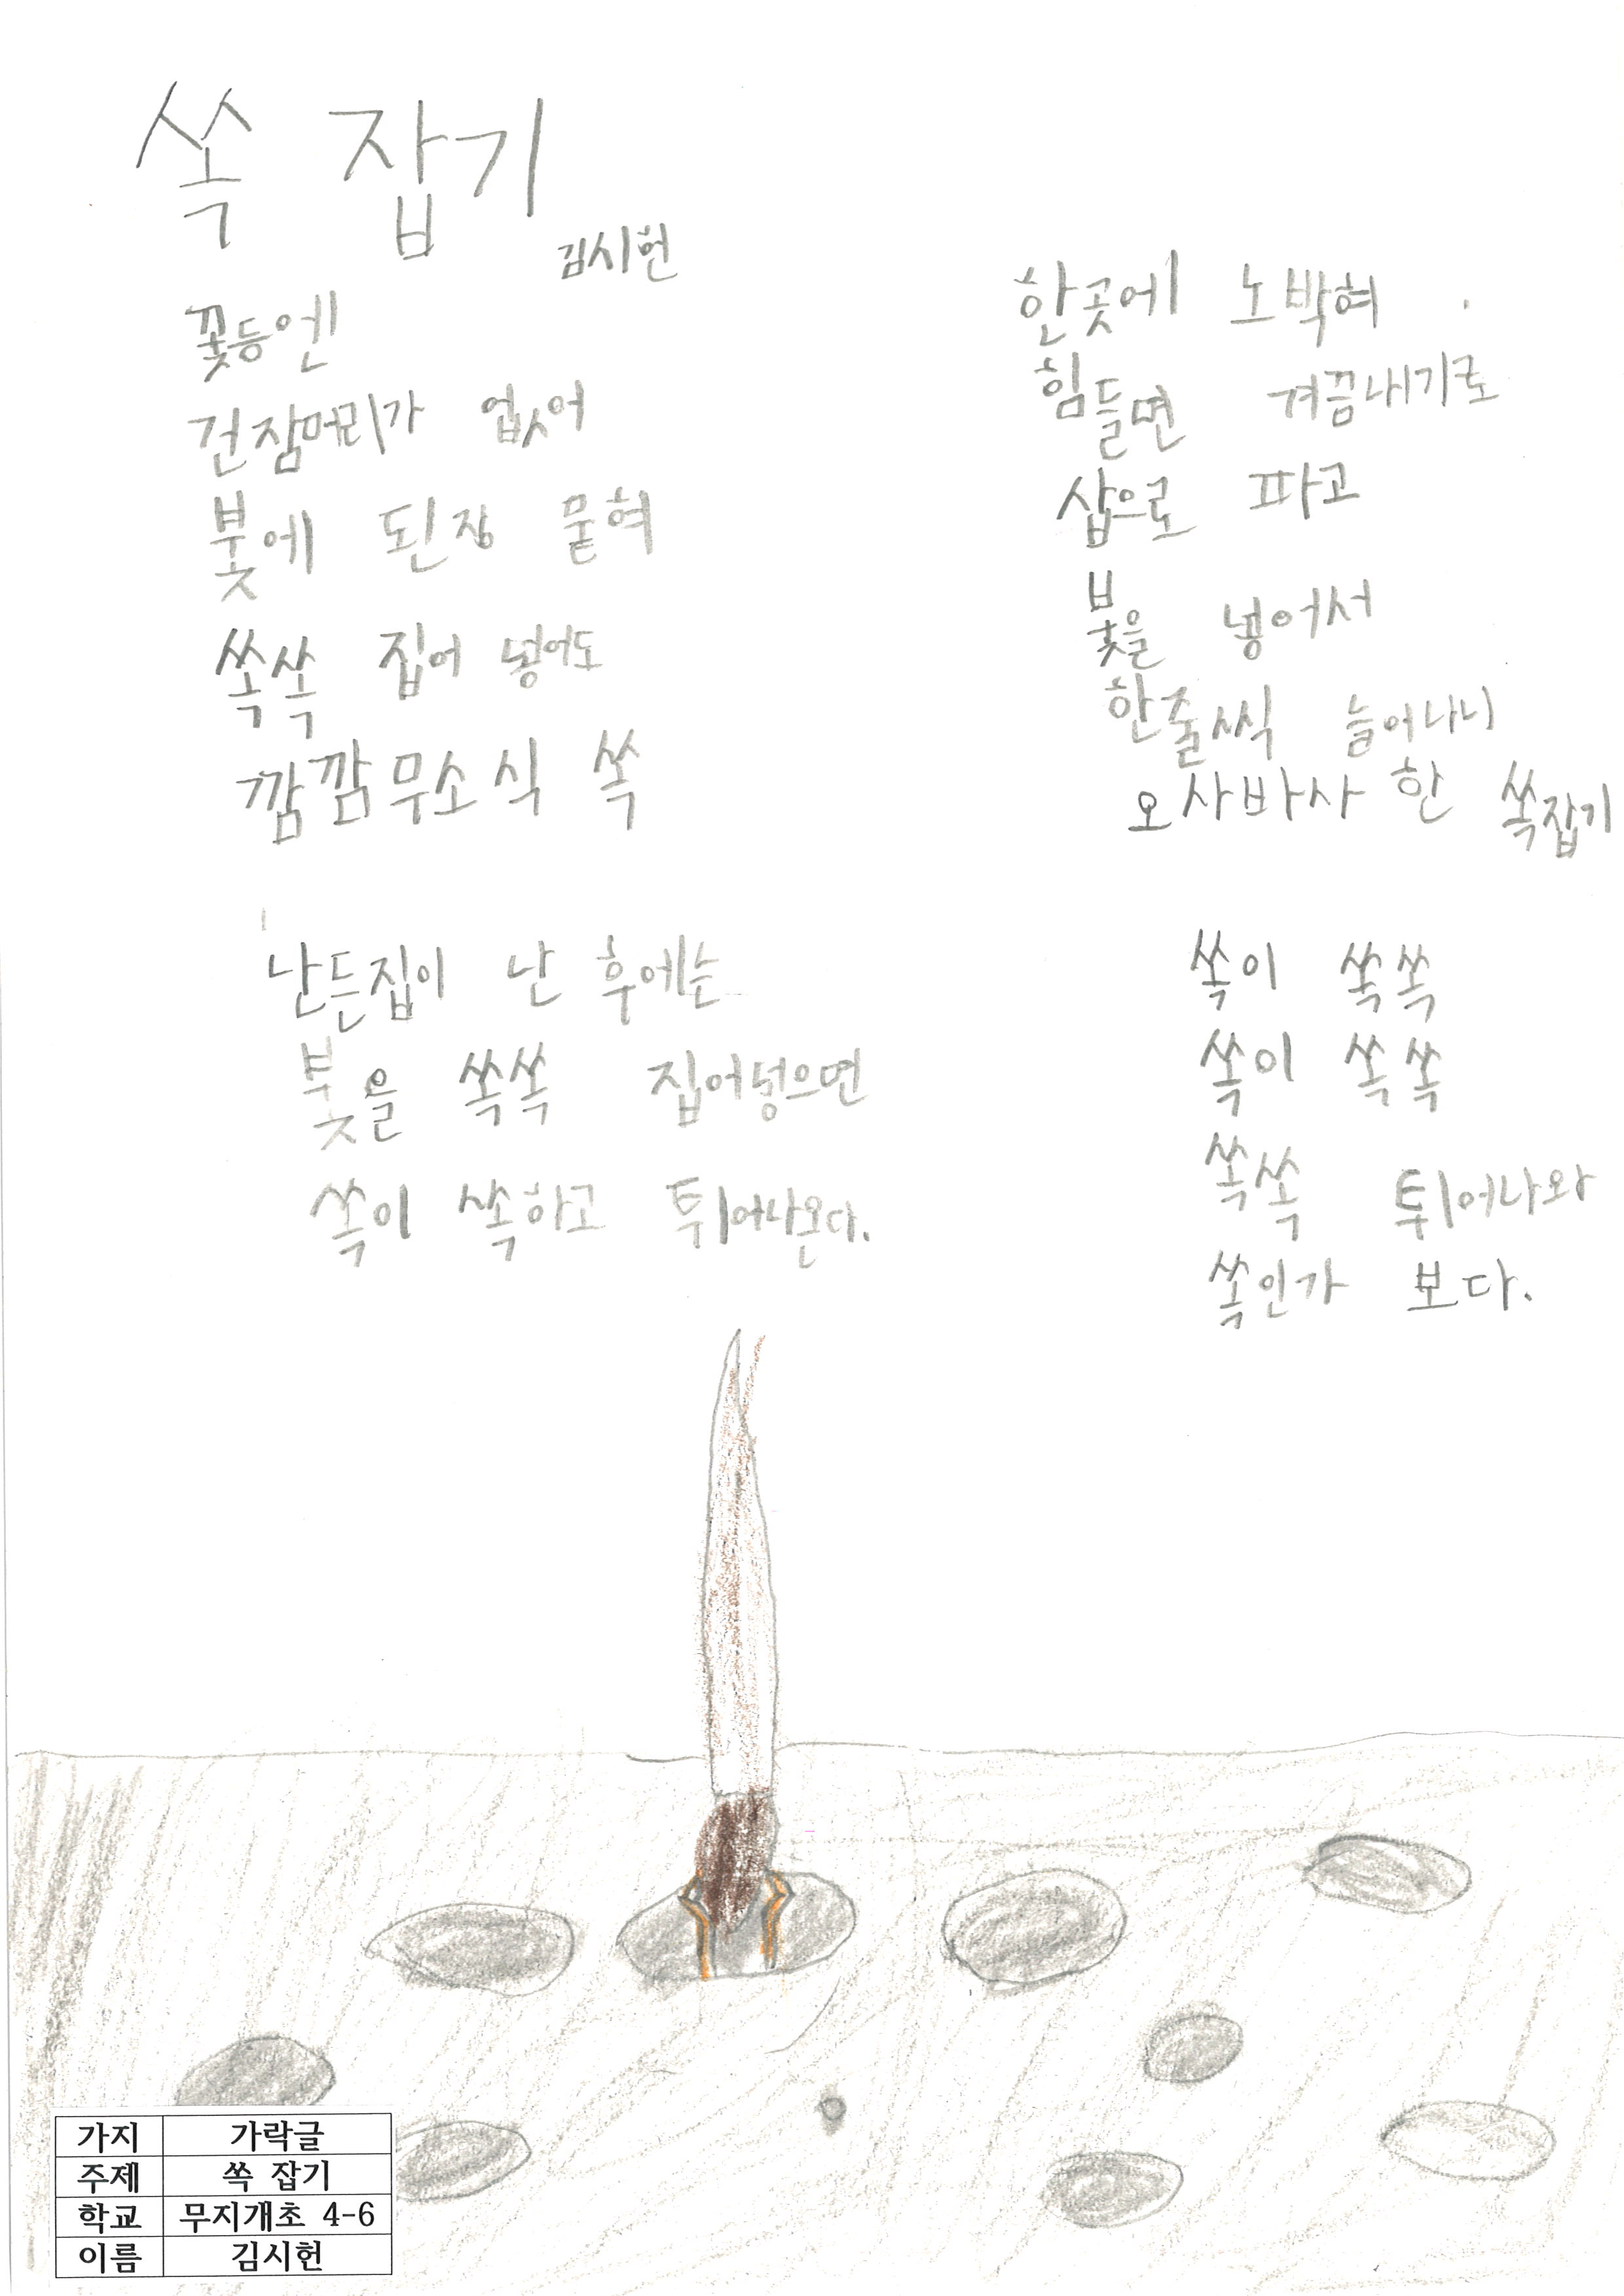 쏙 잡기
김시헌
꽃등엔
건잠머리가 없어
붓에 된장 묻혀
쏙쏙 집어 넣어도
깜깜무소식 쏙
난든집이 난 후에는
붓을 쏙쏙 집어넣으면
쏙이 쏙하고 튀어나온다.
한곳에 노박혀
힘들면 겨끔내기로
삽으로 파고
붗을 넣어서
한줄씩 늘어나니
오사바사 한 쏙잡기
쏙이 쏙쏙
쏙이 쏙쏙
쏙쏙 튀어나와
쏙인가 보다.
가지 가락글
주제 쏙 잡기
학교 무지개초 4-6
이름 김시헌